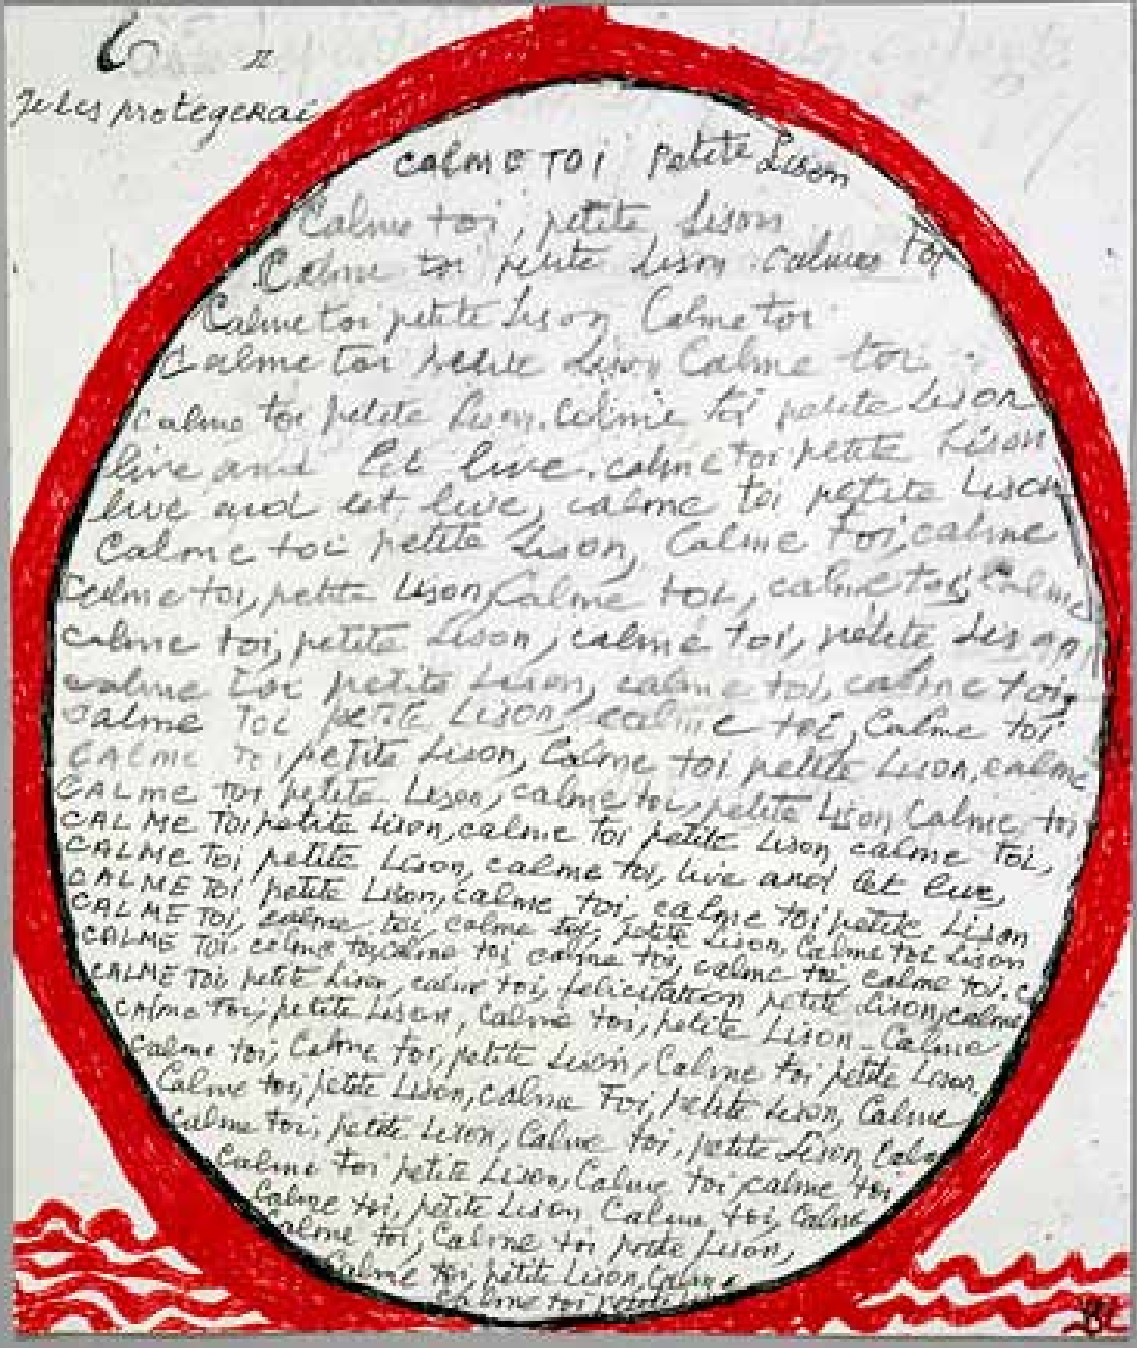 6
II
Je les protegerai
CALME TOI Petite Lison
Calme toi, petite Lison
Calme toi petite Lison. Calmes toi
Calme toi petite Lison Calme toi
Calme toi petite Lison Calme toi
Calme toi petite Lison. Calme toi petite Lison
live and let live. calme toi petite Lison
live and let live, calme toi petite Lison
Calme toi petite Lison, Calme toi, calme
Calme toi, petite Lison, Calme toi, calme toi, Calme
calme toi, petite Lison, calme toi, petite Lison
calme toi petite Lison, calme toi, calme toi,
calme toi petite Lison, calme toi, Calme toi
CALME toi petite Lison, Calme toi petite Lison, calme
CALme toi petite Lison, calme toi, petite Lison Calme toi
CALME TOI petite Lison, calme toi petite Lison calme toi,
CALME Toi petite Lison, calme toi, live and let live,
CALME TOI petite Lison, calme toi, calme toi petite Lison
CALME TOI, calme toi, calme toi, petite Lison, Calme toi Lison
CALME TOI. calme toi calme toi calme toi, calme toi, calme toi. c
CALME TOI petite Lison, calme toi, felicitation petite Lison, calme
CAlme Toi, petite Lison, Calme toi, petite Lison - Calme
calme toi, Calme toi, petite Lison, Calme toi petite Lison,
Calme toi, petite Lison, calme Toi, petite Lison, Calme
calme toi, petite Lison, Calme toi, petite Lison, Calm
Calme toi petite Lison, Calme toi calme toi
Calme toi, petite Lison Calme toi, Calme
Calme toi, Calme toi petite Lison,
Calme toi, petite Lison, Calme
Calme toi petite